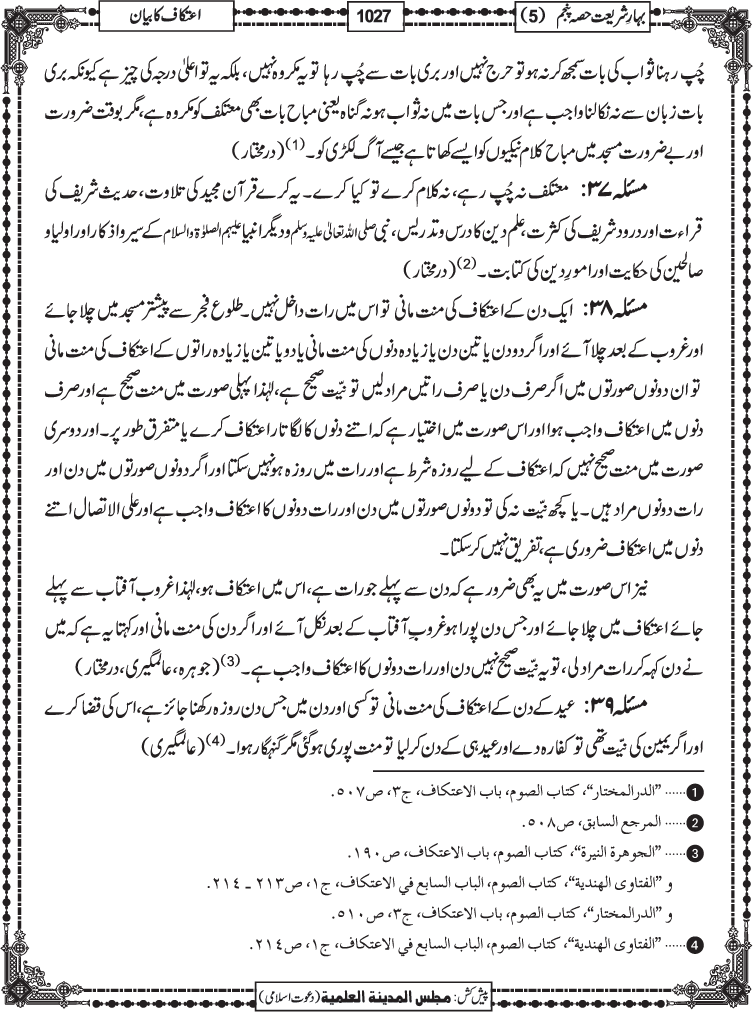 بہارِ شریعت حصہ پنجم (5)
1027
اعتکاف کا بیان
چُپ رہنا ثواب کی بات سمجھ کر نہ ہو تو حرج نہیں اور بری بات سے چُپ رہا تو یہ مکروہ نہیں، بلکہ یہ تو اعلیٰ درجہ کی چیز ہے کیونکہ بری
بات زبان سے نہ نکالنا واجب ہے اور جس بات میں نہ ثواب ہو نہ گناہ یعنی مباح بات بھی معتکف کو مکروہ ہے، مگر بوقت ضرورت
اور بے ضرورت مسجد میں مباح کلام نیکیوں کو ایسے کھاتا ہے جیسے آگ لکڑی کو۔ (1) (درمختار)
مسئلہ ۳۷: معتکف نہ چُپ رہے، نہ کلام کرے تو کیا کرے۔ یہ کرے قرآن مجید کی تلاوت، حدیث شریف کی
قراءت اور درود شریف کی کثرت، علم دین کا درس و تدریس، نبی صلی اللہ تعالیٰ علیہ وسلم و دیگر انبیا علیہم الصلوٰۃ والسلام کے سیر و اذکار اور اولیا و
صالحین کی حکایت اور امورِ دین کی کتابت۔ (2) (درمختار)
مسئلہ ۳۸: ایک دن کے اعتکاف کی منت مانی تو اس میں رات داخل نہیں۔ طلوع فجر سے پیشتر مسجد میں چلا جائے
اور غروب کے بعد چلا آئے اور اگر دو دن یا تین دن یا زیادہ دنوں کی منت مانی یا دو یا تین یا زیادہ راتوں کے اعتکاف کی منت مانی
تو ان دونوں صورتوں میں اگر صرف دن یا صرف راتیں مراد لیں تو نیّت صحیح ہے، لہٰذا پہلی صورت میں منت صحیح ہے اور صرف
دنوں میں اعتکاف واجب ہوا اور اس صورت میں اختیار ہے کہ اتنے دنوں کا لگاتار اعتکاف کرے یا متفرق طور پر۔ اور دوسری
صورت میں منت صحیح نہیں کہ اعتکاف کے لیے روزہ شرط ہے اور رات میں روزہ ہو نہیں سکتا اور اگر دونوں صورتوں میں دن اور
رات دونوں مراد ہیں۔ یا کچھ نیّت نہ کی تو دونوں صورتوں میں دن اور رات دونوں کا اعتکاف واجب ہے اور علی الاتصال اتنے
دنوں میں اعتکاف ضروری ہے، تفریق نہیں کر سکتا۔
نیز اس صورت میں یہ بھی ضرور ہے کہ دن سے پہلے جو رات ہے، اس میں اعتکاف ہو، لہٰذا غروب آفتاب سے پہلے
جائے اعتکاف میں چلا جائے اور جس دن پورا ہو غروبِ آفتاب کے بعد نکل آئے اور اگر دن کی منت مانی اور کہتا یہ ہے کہ میں
نے دن کہہ کر رات مراد لی، تو یہ نیّت صحیح نہیں دن اور رات دونوں کا اعتکاف واجب ہے۔ (3) (جوہرہ، عالمگیری، درمختار)
مسئلہ ۳۹: عید کے دن کے اعتکاف کی منت مانی تو کسی اور دن میں جس دن روزہ رکھنا جائز ہے، اس کی قضا کرے
اور اگر یمین کی نیّت تھی تو کفارہ دے اور عید ہی کے دن کر لیا تو منت پوری ہوگئی مگر گنہگار ہوا۔ (4) (عالمگیری)
1 ...... "الدرالمختار"، کتاب الصوم، باب الاعتکاف، ج٣، ص٥٠٧.
2 ...... المرجع السابق، ص٥٠٨.
3 ...... "الجوهرة النيرة"، کتاب الصوم، باب الاعتکاف، ص١٩٠.
و "الفتاوی الهندية"، کتاب الصوم، الباب السابع في الاعتکاف، ج١، ص٢١٣ ـ ٢١٤.
و "الدرالمختار"، کتاب الصوم، باب الاعتکاف، ج٣، ص٥١٠.
4 ...... "الفتاوی الهندية"، کتاب الصوم، الباب السابع في الاعتکاف، ج١، ص٢١٤.
پیش کش: مجلس المدینة العلمیة (دعوت اسلامی)